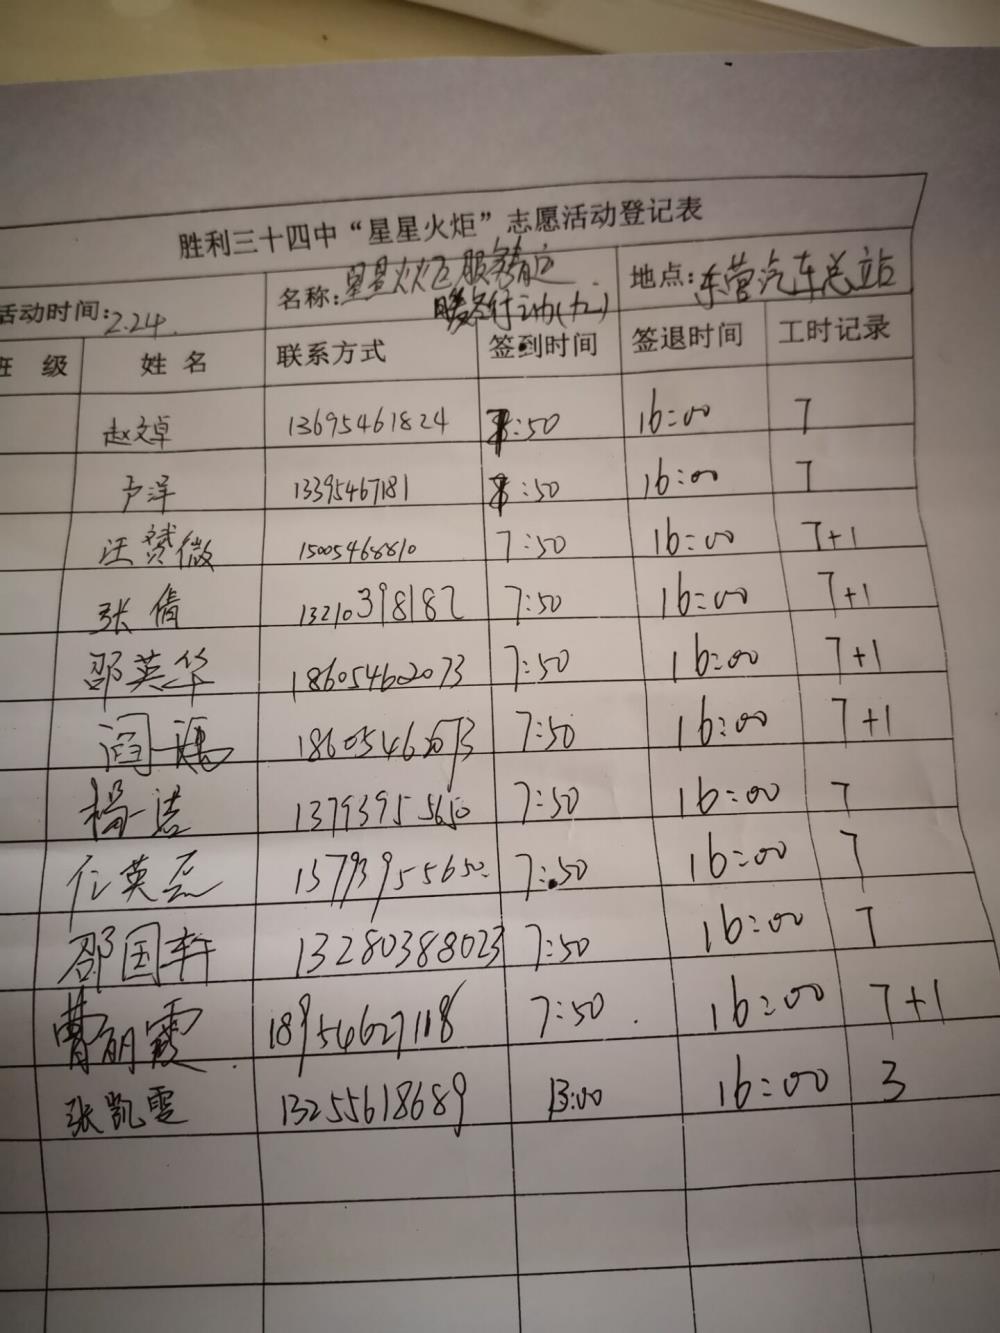 胜利三十四中“星星火炬”志愿活动登记表
活动时间:2.24. 名称:星星火炬服务春运 地点:东营汽车总站
暖冬行动(九)
班 级 姓 名 联系方式 签到时间 签退时间 工时记录
赵文卓 13695461824 7:50 16:00 7
卢洋 13395467181 :50 16:00 7
汪赟微 15005468810 7:50 16:00 7+1
张倩 13210398182 7:50 16:00 7+1
邵英华 18605462073 7:50 16:00 7+1
阎 18605462073 7:50 16:00 7+1
杨一诺 13793955650 7:50 16:00 7
英 13793955650 7:50 16:00 7
邵国轩 13280388023 7:50 16:00 7
曹明霞 18954627118 7:50 16:00 7+1
张凯雯 13255618689 13:00 16:00 3